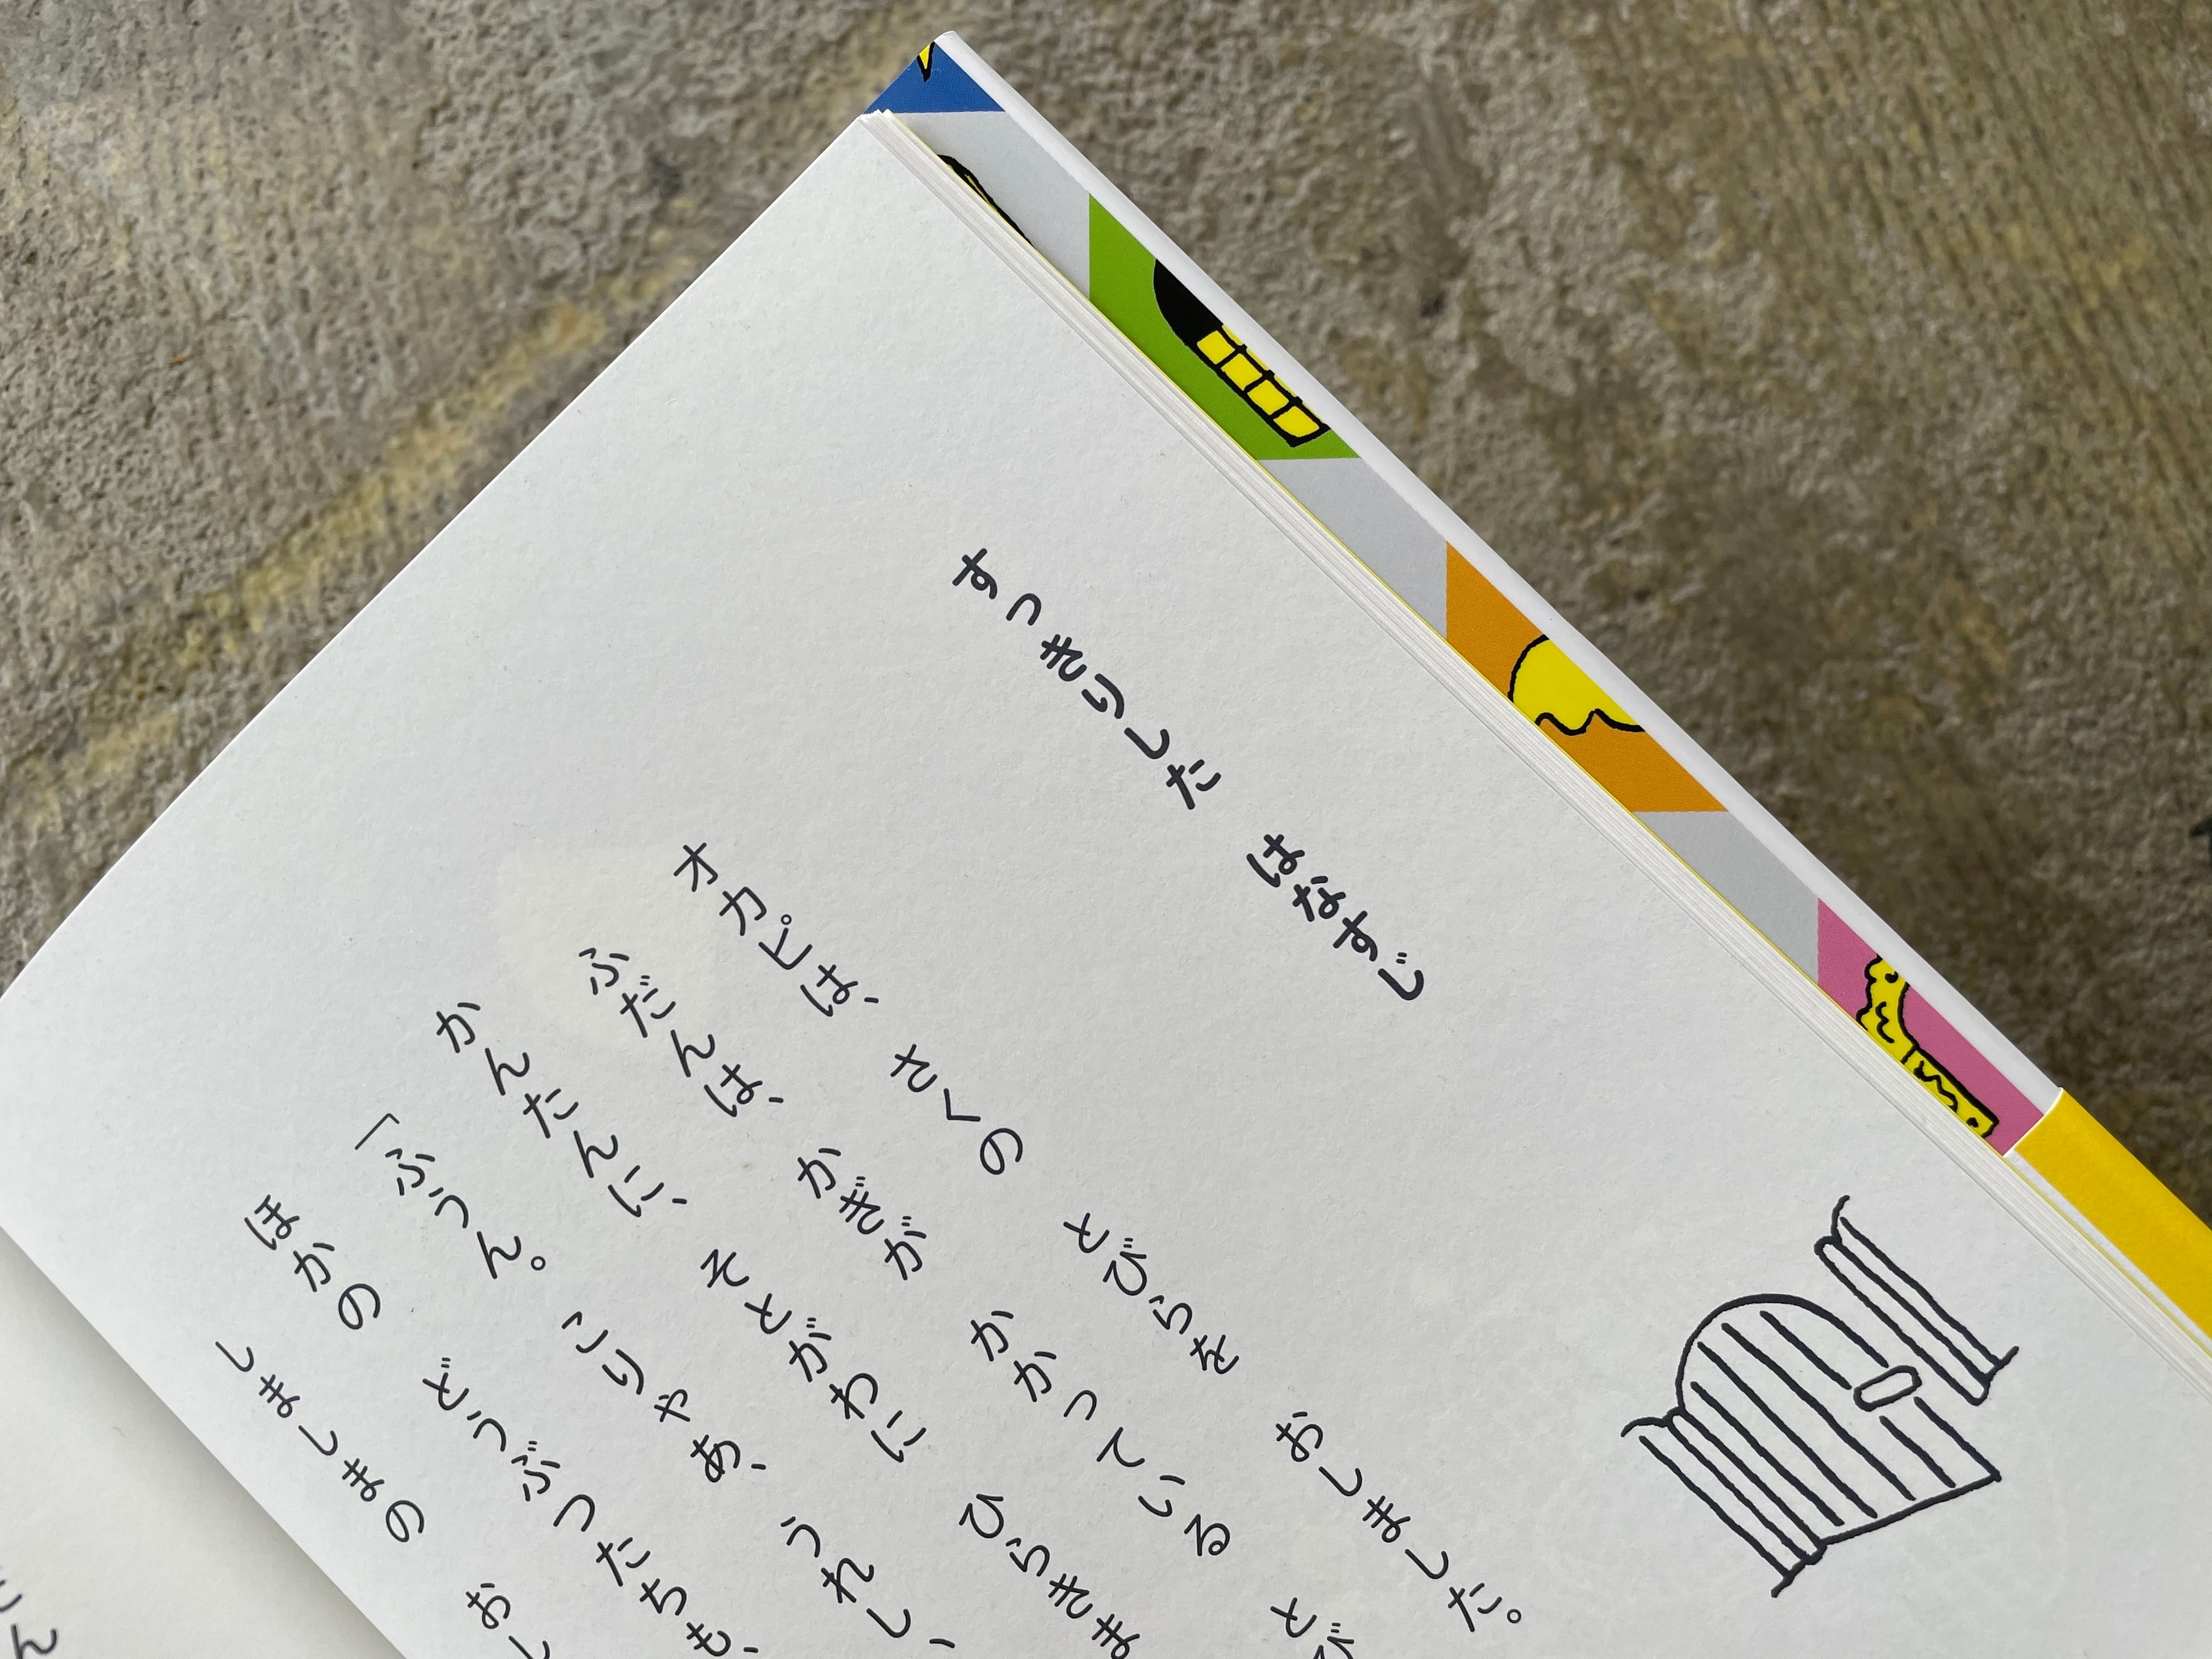 すっきりした はなすじ
オカピは、 さくの とびらを おしました。
ふだんは、 かぎが かかっている とび
かんたんに、 そとがわに ひらきま
「ふうん。 こりゃあ、 うれし、
ほかの どうぶつたちも、
しましまの おし